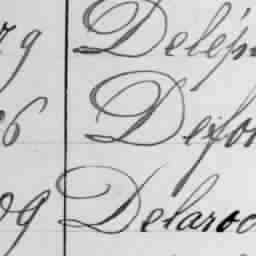 79 Delép
26 Defor
09 Delaroc